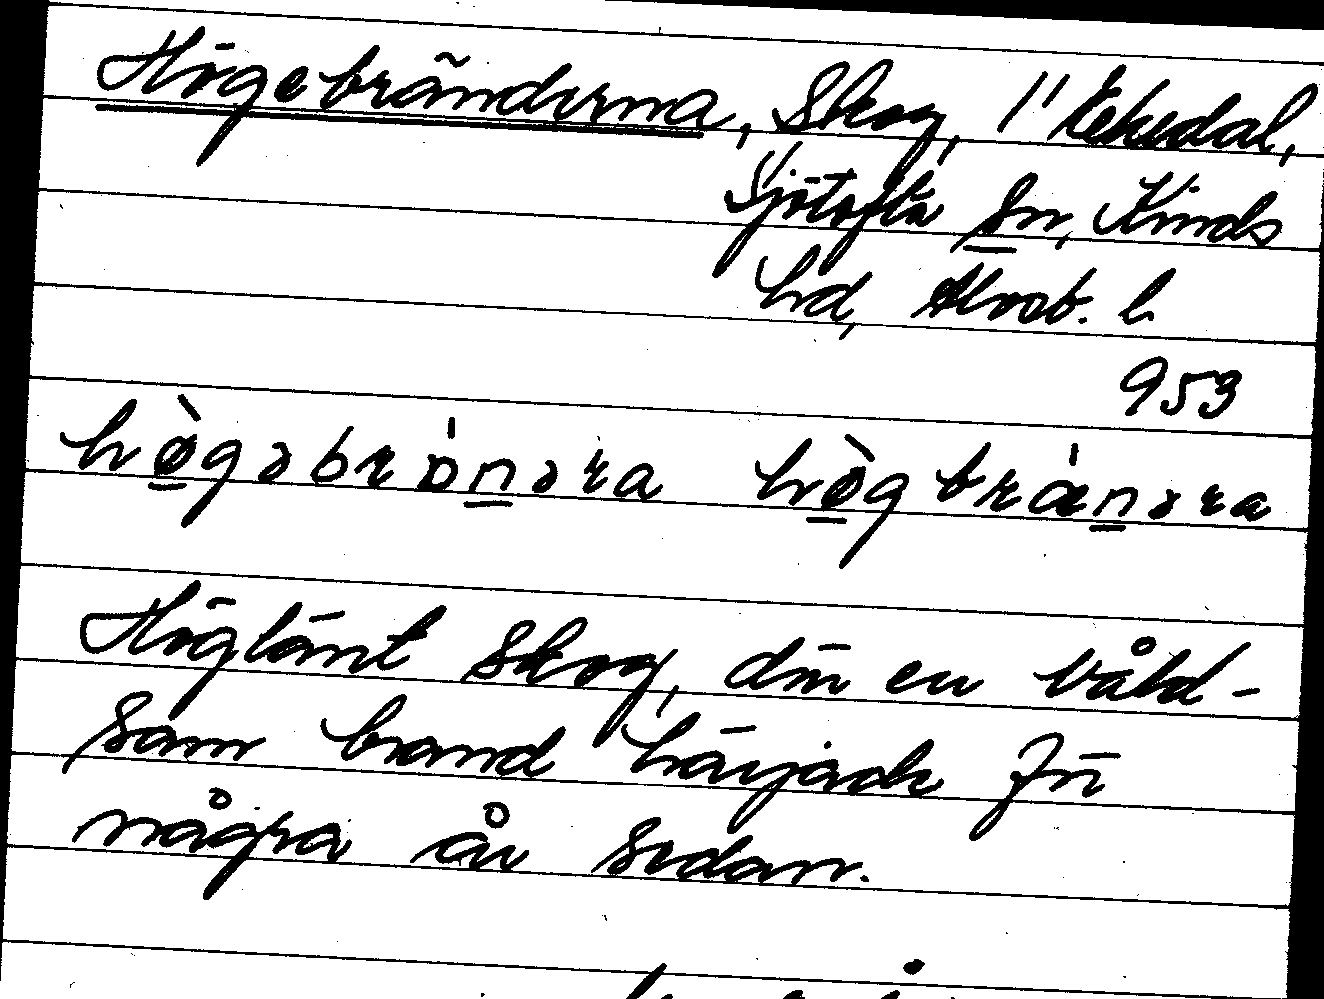 Högebränderna, Skog, 1" Ekedal,
Sjötofta Sn, Kinds
hd, Älvsb. l
953
hø̀gəbrànəra hø̀gbrænəra
Höglänt skog, där en våld-
sam brand härjade för
några år sedan.